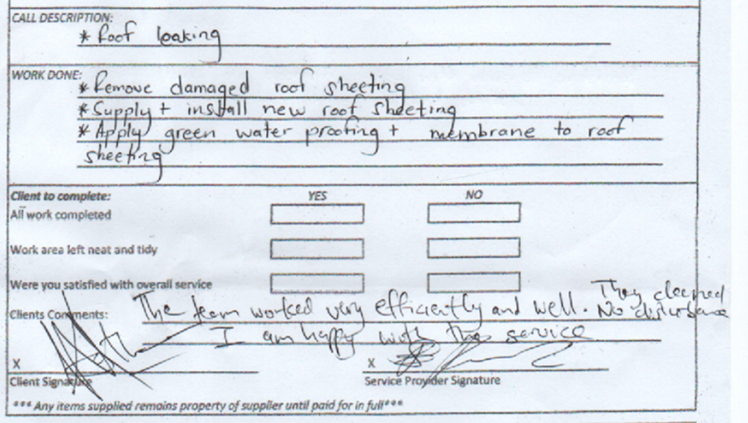 CALL DESCRIPTION:
* Roof leaking
WORK DONE:
* Remove damaged roof sheeting
* Supply + install new roof sheeting
* Apply green water proofing + membrane to roof
sheeting
Client to complete: YES NO
All work completed
Work area left neat and tidy
Were you satisfied with overall service
Clients Comments: The team worked very efficiently and well. They cleaned
No disturbance
I am happy with the service
X X
Client Signature Service Provider Signature
*** Any items supplied remains property of supplier until paid for in full***